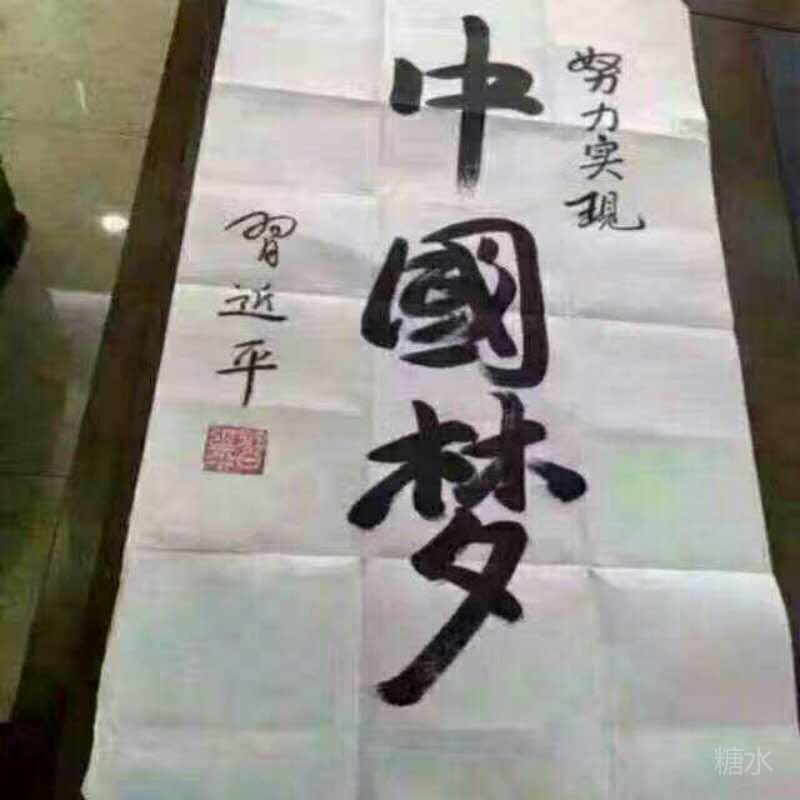 努力实现
中國梦
習近平
糖水